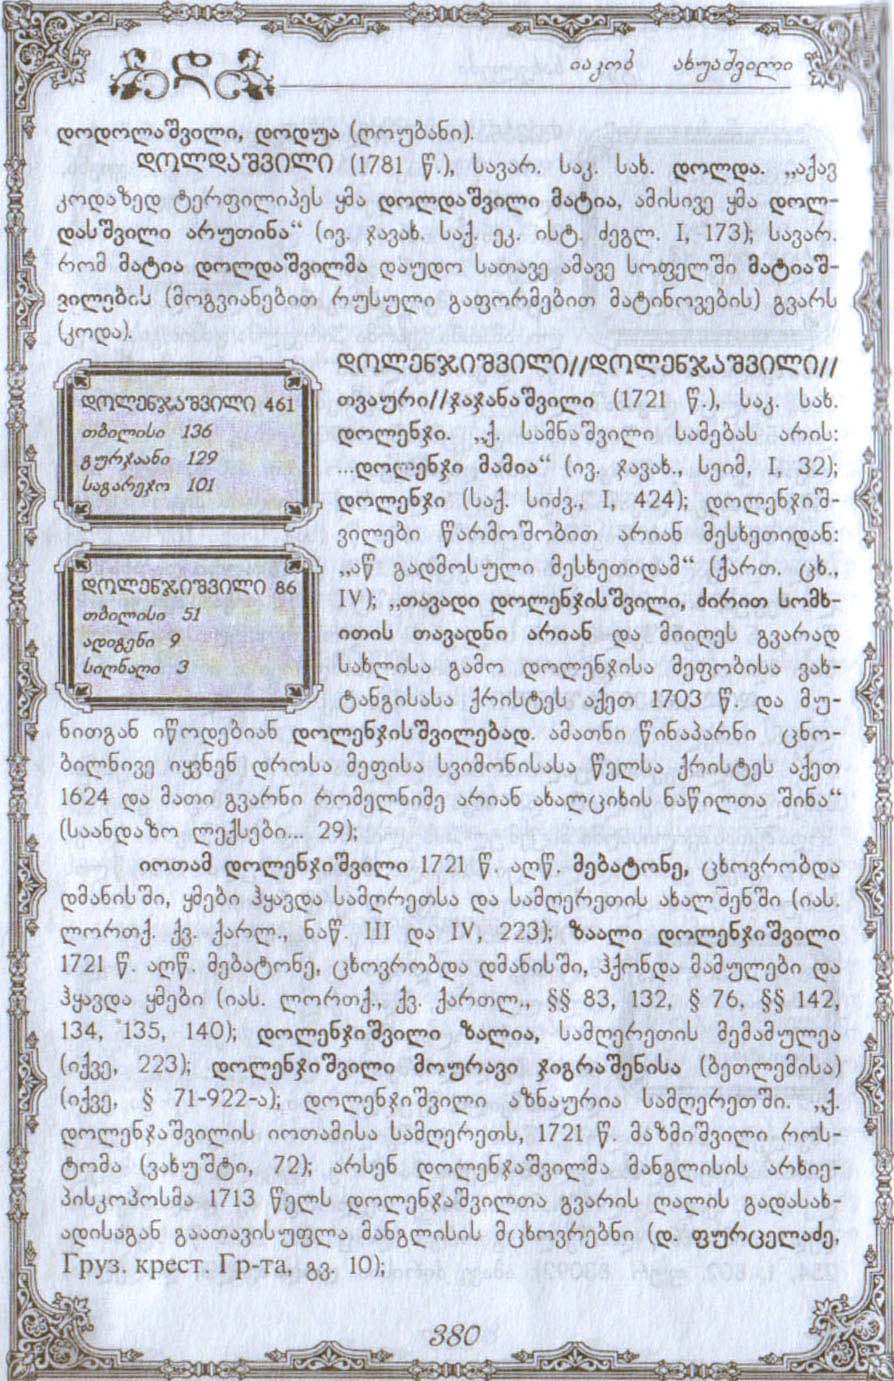 დ
იაკობ ახუაშვილი
დოდოლაშვილი, დოდუა (ღოუბანი).
დოლდაშვილი (1781 წ.), სავარ. საკ. სახ. დოლდა. „აქავ
კოდაზედ ტერფილიპეს ყმა დოლდაშვილი მატია, ამისივე ყმა დოლ-
დასშვილი არუთინა“ (ივ. ჯავახ. საქ. ეკ. ისტ. ძეგლ. I, 173); სავარ.
რომ მატია დოლდაშვილმა დაუდო სათავე ამავე სოფელში მატიაშ-
ვილების (მოგვიანებით რუსული გაფორმებით მატინოვების) გვარს
(კოდა).
დოლენჯიშვილი//დოლენჯაშვილი//
თვაური//ჯაჯანაშვილი (1721 წ.), საკ. სახ.
დოლენჯი. „ქ. სამნაშვილი სამებას არის:
...დოლენჯი მამია“ (ივ. ჯავახ., სეიმ, I, 32);
დოლენჯი (საქ. სიძვ., I, 424); დოლენჯიშ-
ვილები წარმოშობით არიან მესხეთიდან:
„აწ გადმოსული მესხეთიდამ“ (ქართ. ცხ.,
IV); „თავადი დოლენჯისშვილი, ძირით სომხ-
ითის თავადნი არიან და მიიღეს გვარად
სახლისა გამო დოლენჯისა მეფობისა ვახ-
ტანგისასა ქრისტეს აქეთ 1703 წ. და მუ-
ნითგან იწოდებიან დოლენჯისშვილებად. ამათნი წინაპარნი ცნო-
ბილნივე იყვნენ დროსა მეფისა სვიმონისასა წელსა ქრისტეს აქეთ
1624 და მათი გვარნი რომელნიმე არიან ახალციხის ნაწილთა შინა“
(საანდაზო ლექსები... 29);
დოლენჯაშვილი 461
თბილისი 136
გურჯაანი 129
საგარეჯო 101
დოლენჯიშვილი 86
თბილისი 51
ადიგენი 9
სიღნაღი 3
იოთამ დოლენჯიშვილი 1721 წ. აღწ. მებატონე, ცხოვრობდა
დმანისში, ყმები ჰყავდა სამღრეთსა და სამღერეთის ახალშენში (იას.
ლორთქ. ქვ. ქარლ., ნაწ. III და IV, 223); ზაალი დოლენჯიშვილი
1721 წ. აღწ. მებატონე, ცხოვრობდა დმანისში, ჰქონდა მამულები და
ჰყავდა ყმები (იას. ლორთქ., ქვ. ქართლ., §§ 83, 132, § 76, §§ 142,
134, 135, 140); დოლენჯიშვილი ზალია, სამღერეთის მემამულეა
(იქვე, 223); დოლენჯიშვილი მოურავი ჯიგრაშენისა (ბეთლემისა)
(იქვე, § 71-922-ა); დოლენჯიშვილი აზნაურია სამღერეთში. „ქ.
დოლენჯაშვილის იოთამისა სამღერეთს, 1721 წ. მაზმიშვილი როს-
ტომა (ვახუშტი, 72); არსენ დოლენჯაშვილმა მანგლისის არხიე-
პისკოპოსმა 1713 წელს დოლენჯაშვილთა გვარის ღალის გადასახ-
ადისაგან გაათავისუფლა მანგლისის მცხოვრებნი (დ. ფურცელაძე,
Груз. крест. Гр-та, გვ. 10);
380